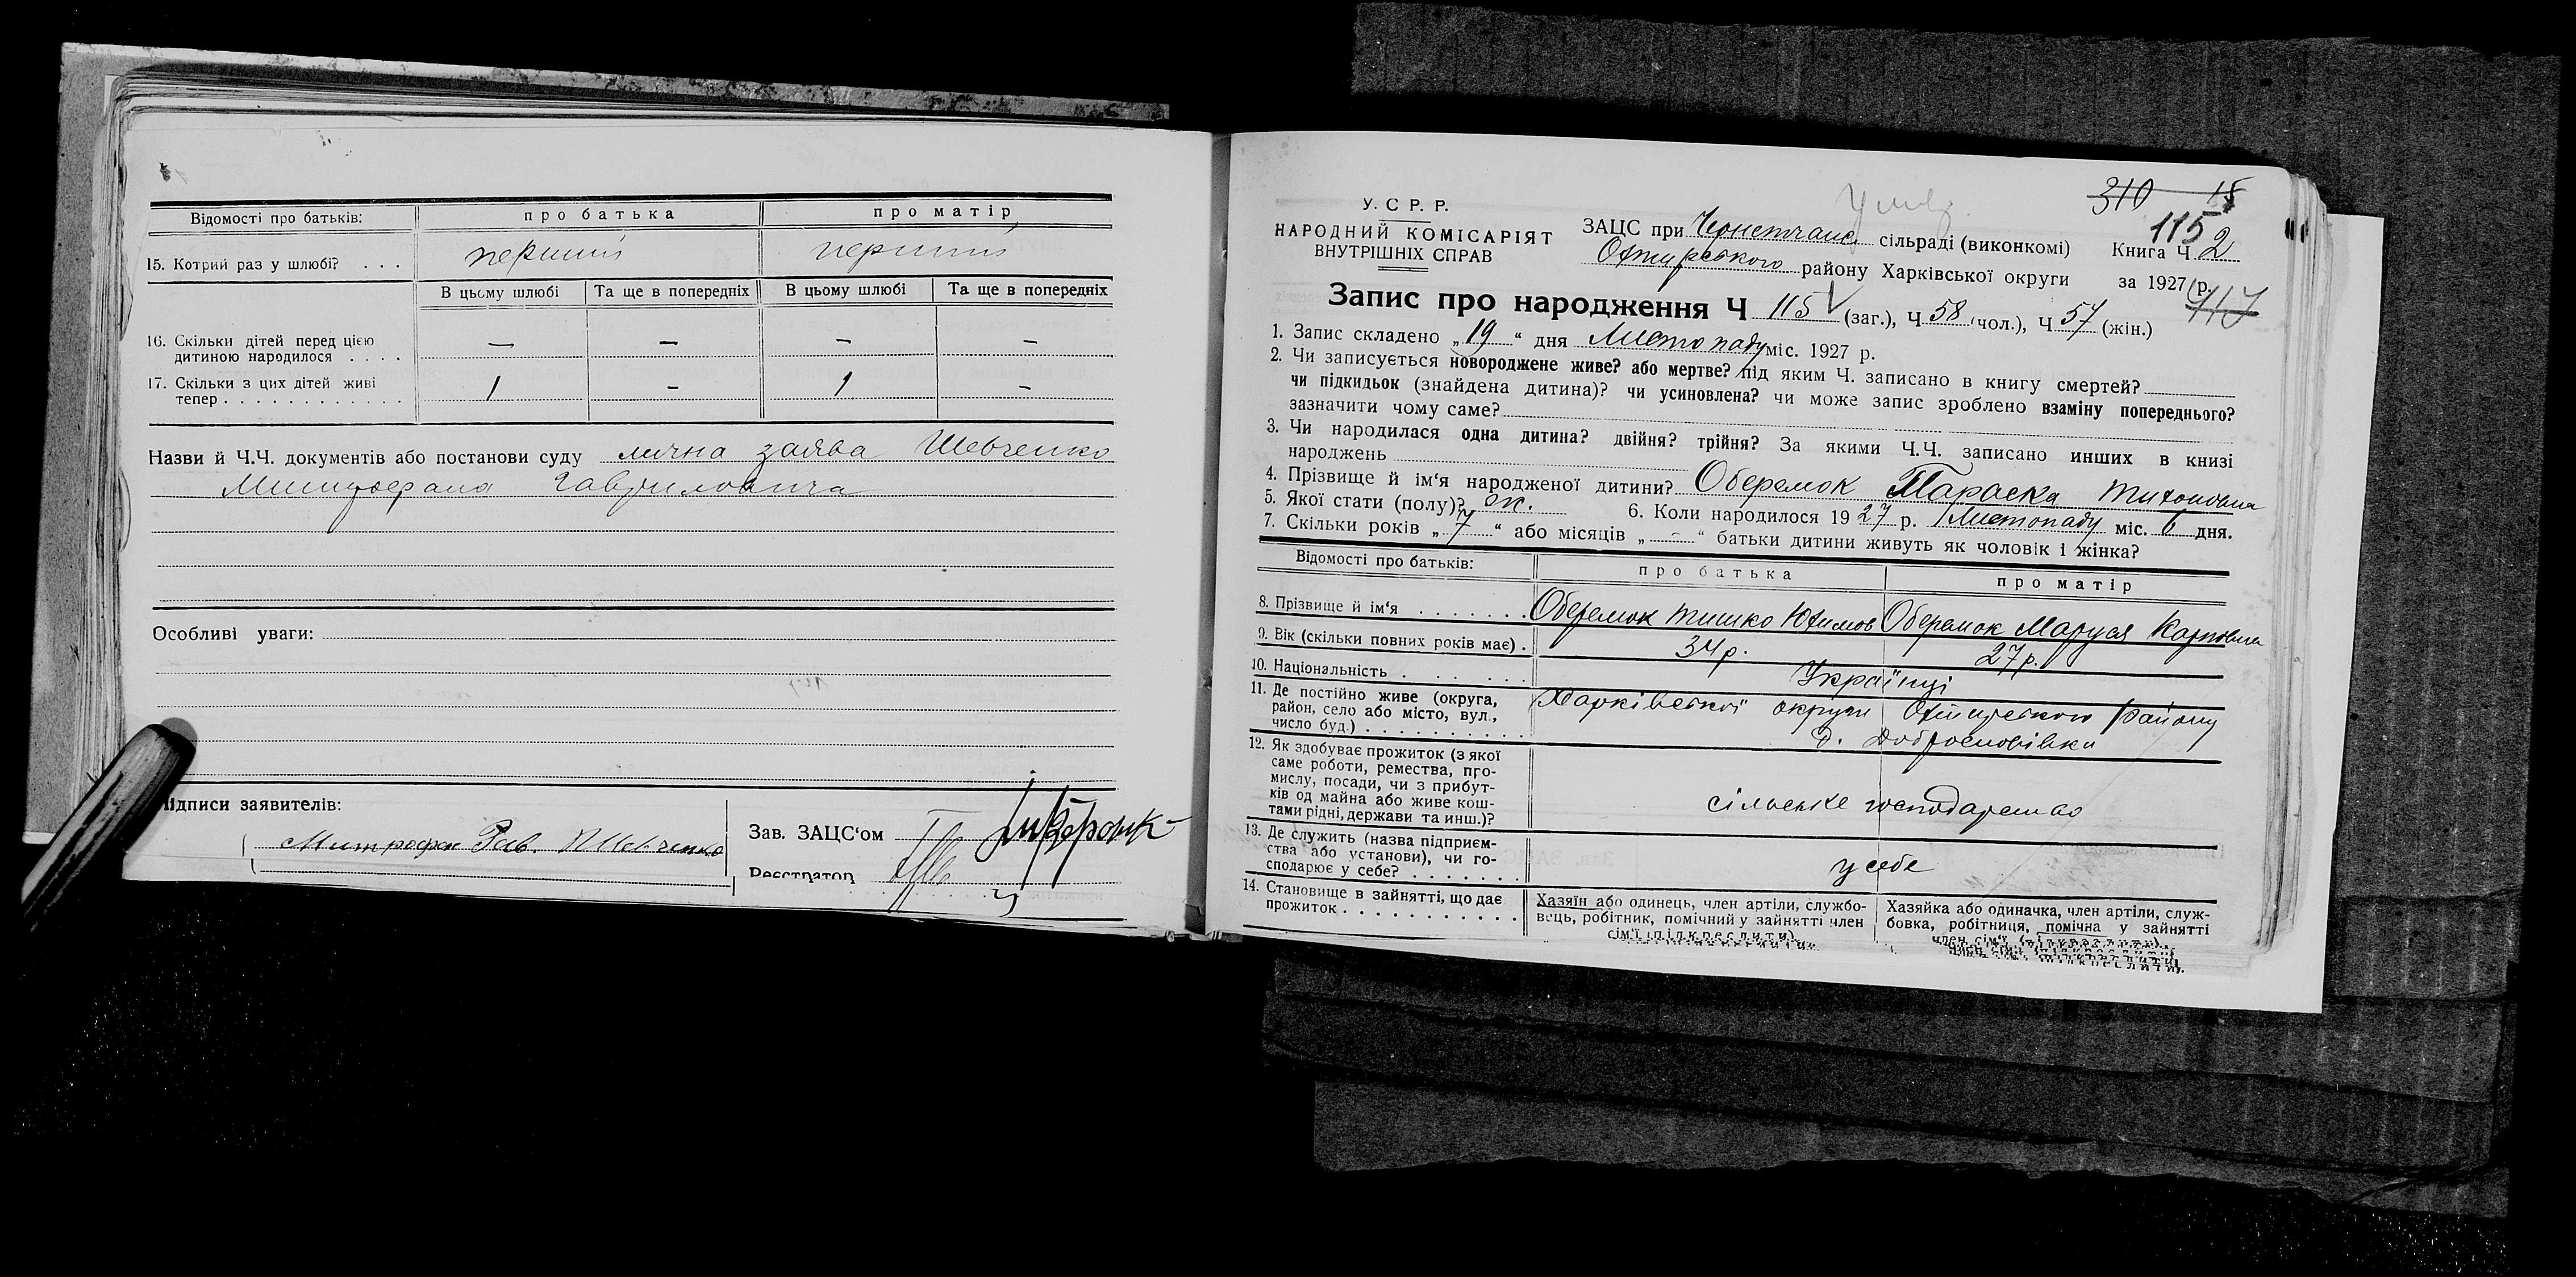 Відомості про батьків: про батька про матір
15. Котрий раз у шлюбі? . . . перший перший
В цьому шлюбі Та ще в попередніх В цьому шлюбі Та ще в попередніх
16. Скільки дітей перед цією — — — —
дитиною народилося . . . .
17. Скільки з цих дітей живі 1 - 1 -
тепер . . . . . . . . . . . .
Назви й Ч.Ч. документів або постанови суду лична заява Шевченко
Митрофана Гавриловича
Особливі уваги:
підписи заявителів:
Митрофан Гав. Шевченко
Зав. ЗАЦС'ом
Реєстратор
У. С Р. Р.
НАРОДНИЙ КОМІСАРІЯТ
ВНУТРІШНІХ СПРАВ
310 18
115
ЗАЦС при Чернетчанс. сільраді (виконкомі) Книга Ч. 2
Охтирського району Харківської округи за 1927 р.
117
Запис про народження Ч 115 (заг.), Ч 58 (чол.), Ч 57 (жін.)
1. Запис складено „19“ дня Листопаду міс. 1927 р.
2. Чи записується новороджене живе? або мертве? під яким Ч. записано в книгу смертей?
чи підкидьок (знайдена дитина)? чи усиновлена? чи може запис зроблено взаміну попереднього?
зазначити чому саме?
3. Чи народилася одна дитина? двійня? трійня? За якими Ч.Ч. записано инших в книзі
народжень
4. Прізвище й ім'я народженої дитини? Оберемок Параска Тихоновна
5. Якої стати (полу)? ж. 6. Коли народилося 1927 р. Листопаду міс. 6 дня.
7. Скільки років „7“ або місяців „-“ батьки дитини живуть як чоловік і жінка?
Відомості про батьків: про батька про матір
8. Прізвище й ім'я . . . . . . . Оберемок Тишко Юхимов Оберемок Маруся Карповна
9. Вік (скільки повних років має) . 34 р. 27 р.
10. Національність . . . . . . . Українці
11. Де постійно живе (округа, Харківської округи Охтирського району
район, село або місто, вул., д. Доброславівка
число буд.) . . . . . . . . . .
12. Як здобуває прожиток (з якої
саме роботи, ремества, про-
мислу, посади, чи з прибут-
ків од майна або живе кош- сільське господарство
тами рідні, держави та инш.)?
13. Де служить (назва підприєм-
ства або установи), чи го- у себе
сподарює у себе? . . . . . . .
14. Становище в зайнятті, що дає Хазяїн або одинець, член артіли, службо- Хазяйка або одиначка, член артіли, служ-
прожиток . . . . . . . . . . . вець, робітник, помічний у зайнятті член бовка, робітниця, помічна у зайнятті
сім'ї (підкреслити). член сім'ї (підкреслити).